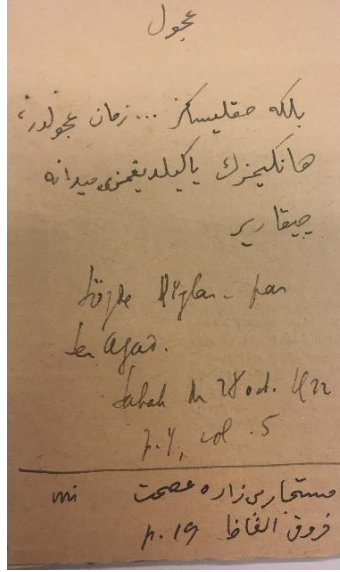 عجول
بلكه حقليسكز ... زمان عجولدر،
هانكيمزك ياكيلديغمزى ميدانه
چيقارير
par
Agâh.
Sabah du 28 oct. 1922
p. 4, col. 5
مستجابى زاده عصمت
فروق الفاظ p. 19